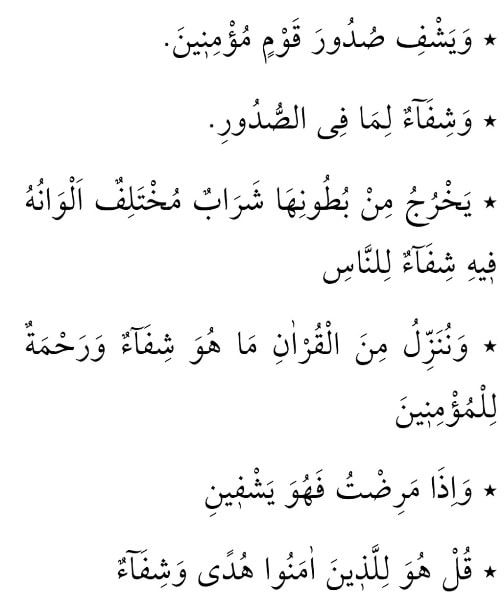 ★ وَيَشْفِ صُدُورَ قَوْمٍ مُؤْمِنٖينَ.
★ وَشِفَٓاءٌ لِمَا فِى الصُّدُورِ.
★ يَخْرُجُ مِنْ بُطُونِهَا شَرَابٌ مُخْتَلِفٌ اَلْوَانُهُ
فٖيهِ شِفَٓاءٌ لِلنَّاسِ
★ وَنُنَزِّلُ مِنَ الْقُرْاٰنِ مَا هُوَ شِفَٓاءٌ وَرَحْمَةٌ
لِلْمُؤْمِنٖينَ
★ وَاِذَا مَرِضْتُ فَهُوَ يَشْفٖينِ
★ قُلْ هُوَ لِلَّذٖينَ اٰمَنُوا هُدًى وَشِفَٓاءٌ